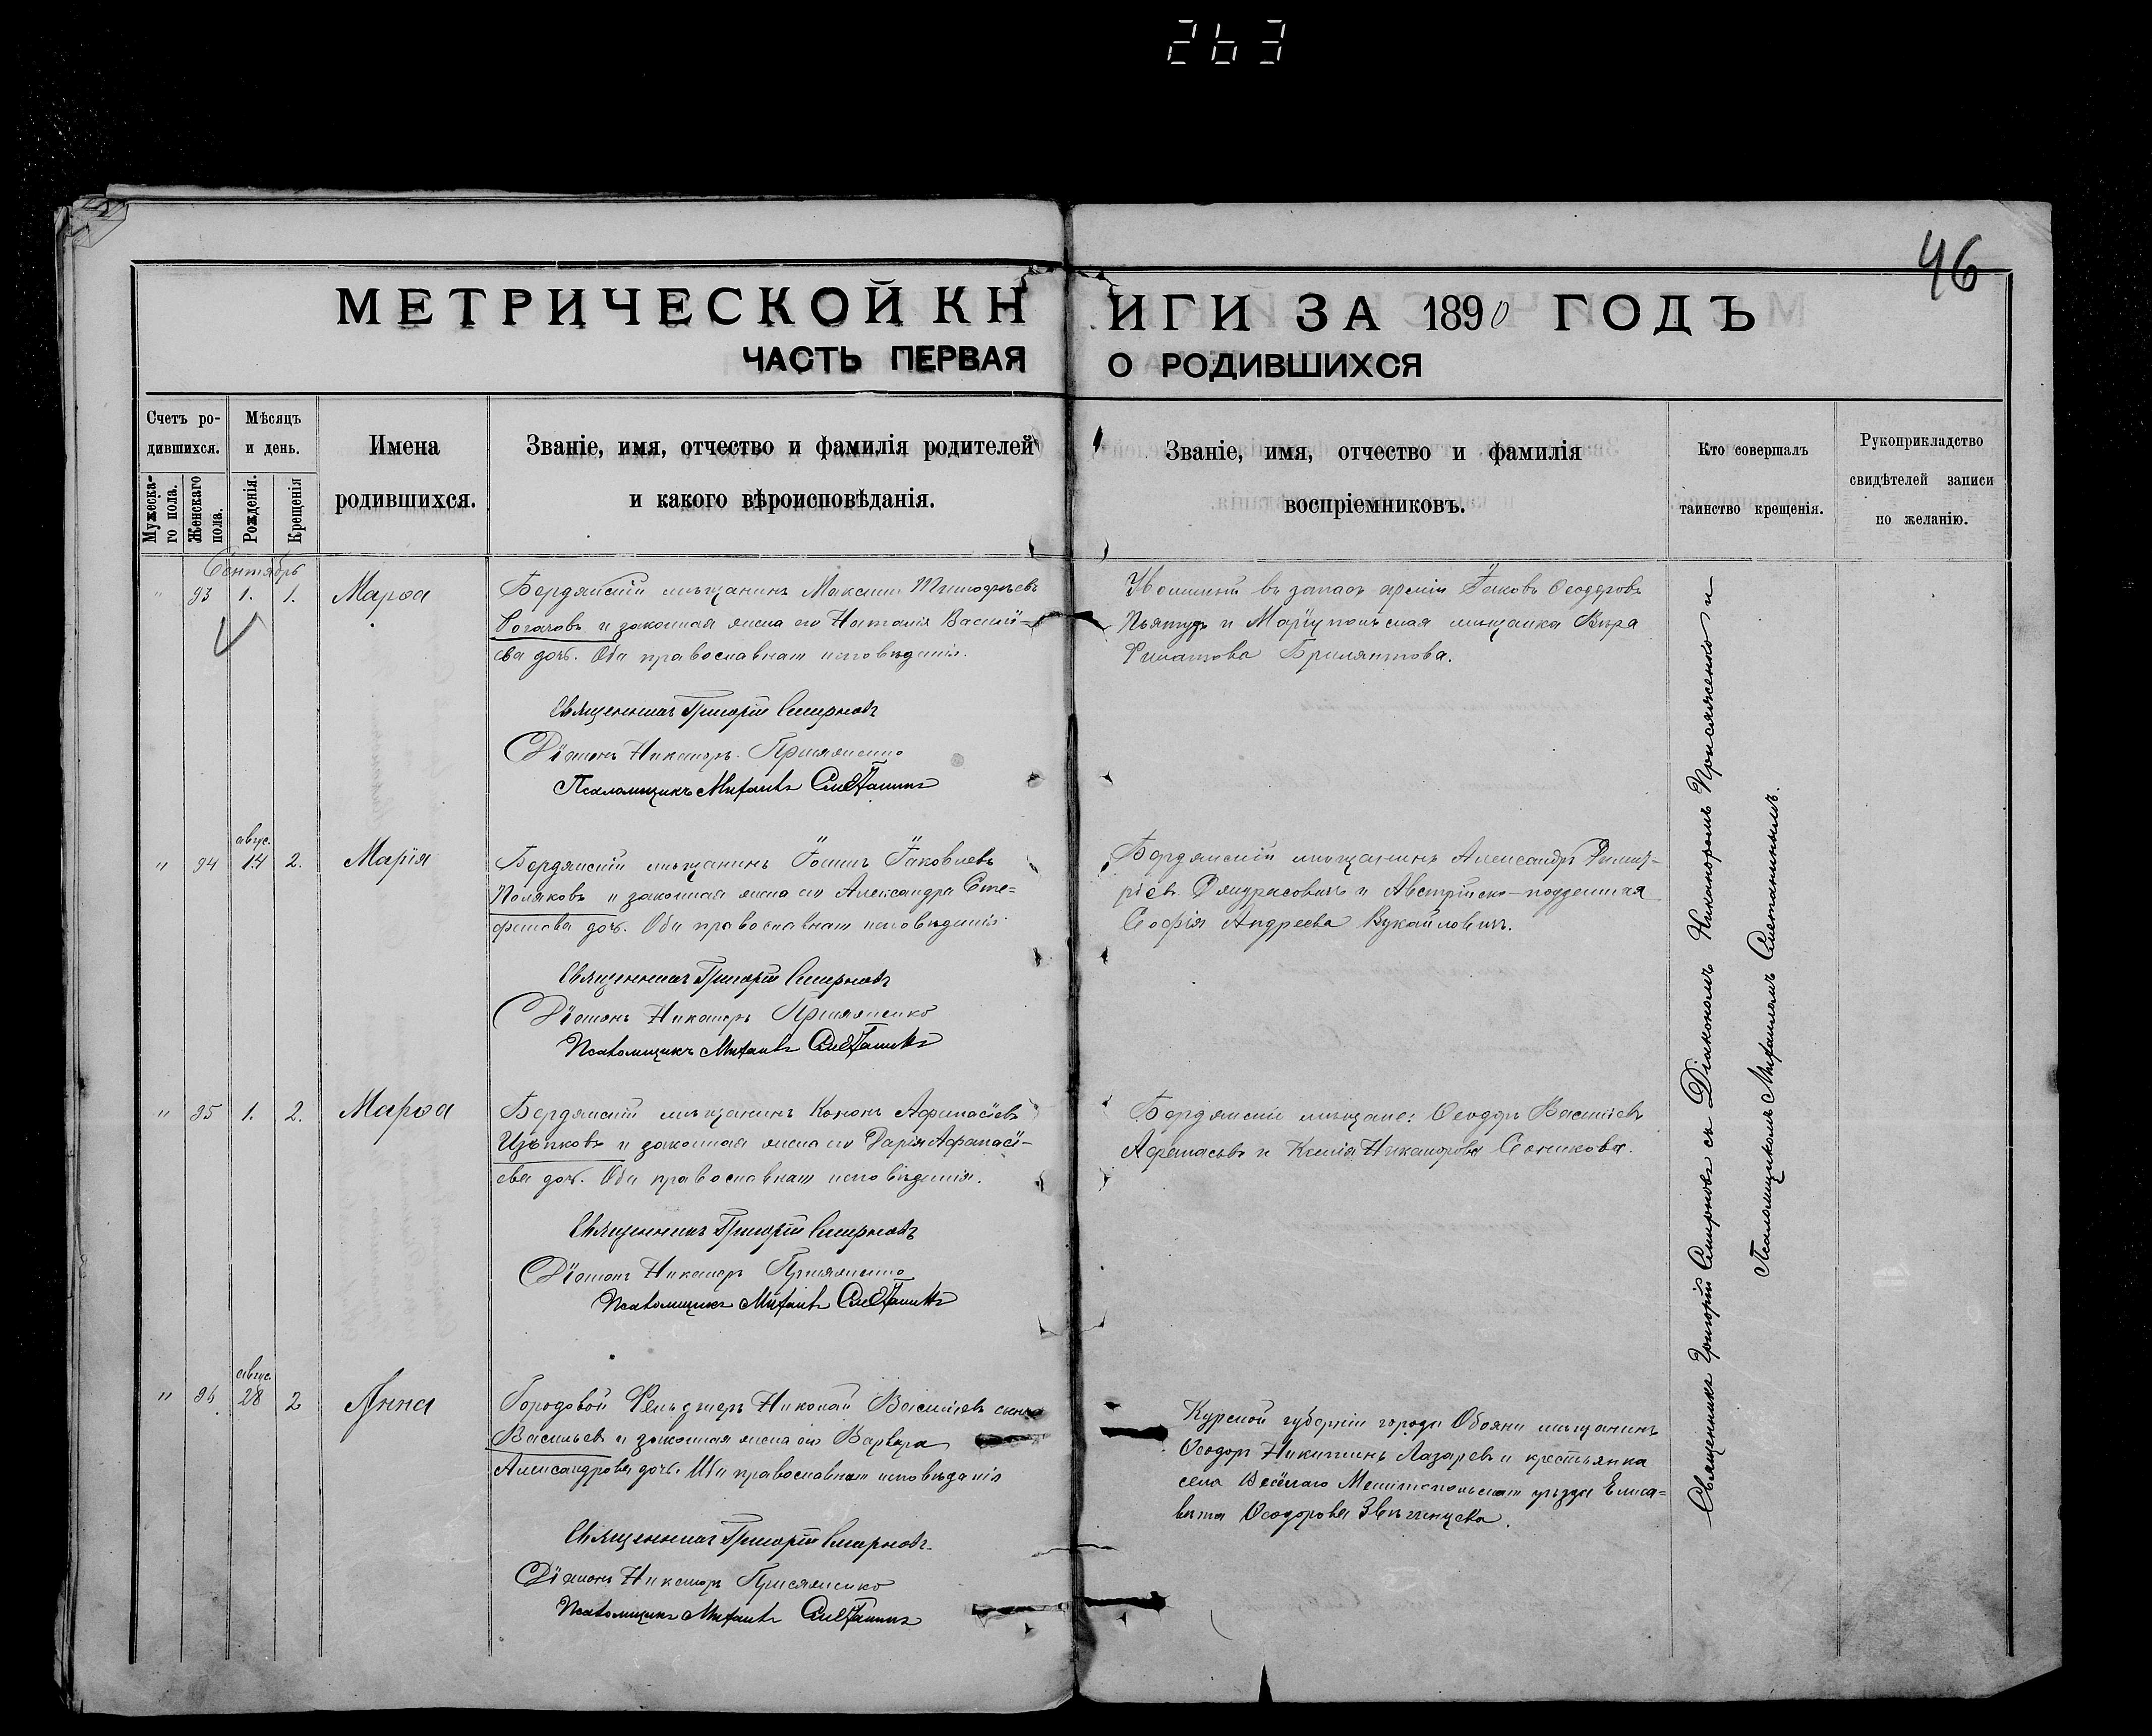 263
46
МЕТРИЧЕСКОЙ КНИГИ ЗА 1890 ГОДЪ
ЧАСТЬ ПЕРВАЯ О РОДИВШИХСЯ
Счетъ ро-
дившихся.
Мужеска-
го пола.
Женскаго
пола.
Мѣсяцъ
и день.
Рожденія.
Крещенія
Имена
родившихся.
Званіе, имя, отчество и фамилія родителей
и какого вѣроисповѣданія.
Званіе, имя, отчество и фамилія
воспріемниковъ.
Кто совершалъ
таинство крещенія.
Рукоприкладство
свидѣтелей записи
по желанію.
Сентябрь
" 93 1. 1. Марѳа
Бердянскій мѣщанинъ Максимъ Тимоѳѣевъ
Рогачовъ и законная жена его Наталія Василі=
ева дочь. Оба православнаго исповѣданія.
Священникъ Григорій Смирновъ
Діаконъ Никаноръ Присяженко
Псаломщикъ Михаилъ Сметанинъ
Уволенный въ запасъ арміи Іаковъ Ѳеодоровъ
и Маріупольская мѣщанка Вѣра
Филатова
авгус.
" 94 14 2. Марія
Бердянскій мѣщанинъ Іосифъ Іаковлевъ
Поляковъ и законная жена его Александра Сте=
фанова дочь. Оба православнаго исповѣданія
Священникъ Григорій Смирновъ
Діаконъ Никаноръ Присяженко
Псаломщикъ Михаилъ Сметанинъ
Бердянскій мѣщанинъ Александръ Димит-
ріевъ и Австрійско-подданная
Софія Андреева Вукайловичъ.
" 95 1. 2. Марѳа
Бердянскій мѣщанинъ Кононъ Афанасіевъ
Изъпковъ и законная жена его Дарія Афанасі-
ева дочь. Оба православнаго исповѣданія.
Священникъ Григорій Смирновъ
Діаконъ Никаноръ Присяженко
Псаломщикъ Михаилъ Сметанинъ
Бердянскіе мѣщане: Ѳеодоръ Василіевъ
Афанасьевъ и Ксенія Никанорова Сеникова.
авгус
" 96. 28 2 Анна
Городовой Фельдшеръ Николай Василіевъ сынъ
Васильевъ и законная жена его Варвара
Александрова дочь. Оба православнаго исповѣданія
Священникъ Григорій Смирновъ.
Діаконъ Никаноръ Присяженко
Псаломщикъ Михаилъ Сметанинъ
Курской губерніи города Обояни мѣщанинъ
Ѳеодоръ Никитинъ Лазаревъ и крестьянка
села Весёлаго Мелитопольскаго уѣзда Елиса=
вета Ѳеодорова Звѣгинцева.
Священникъ Григорій Смирновъ съ Діакономъ Никаноромъ Присяженко и
Псаломщикомъ Михаиломъ Сметанинымъ.